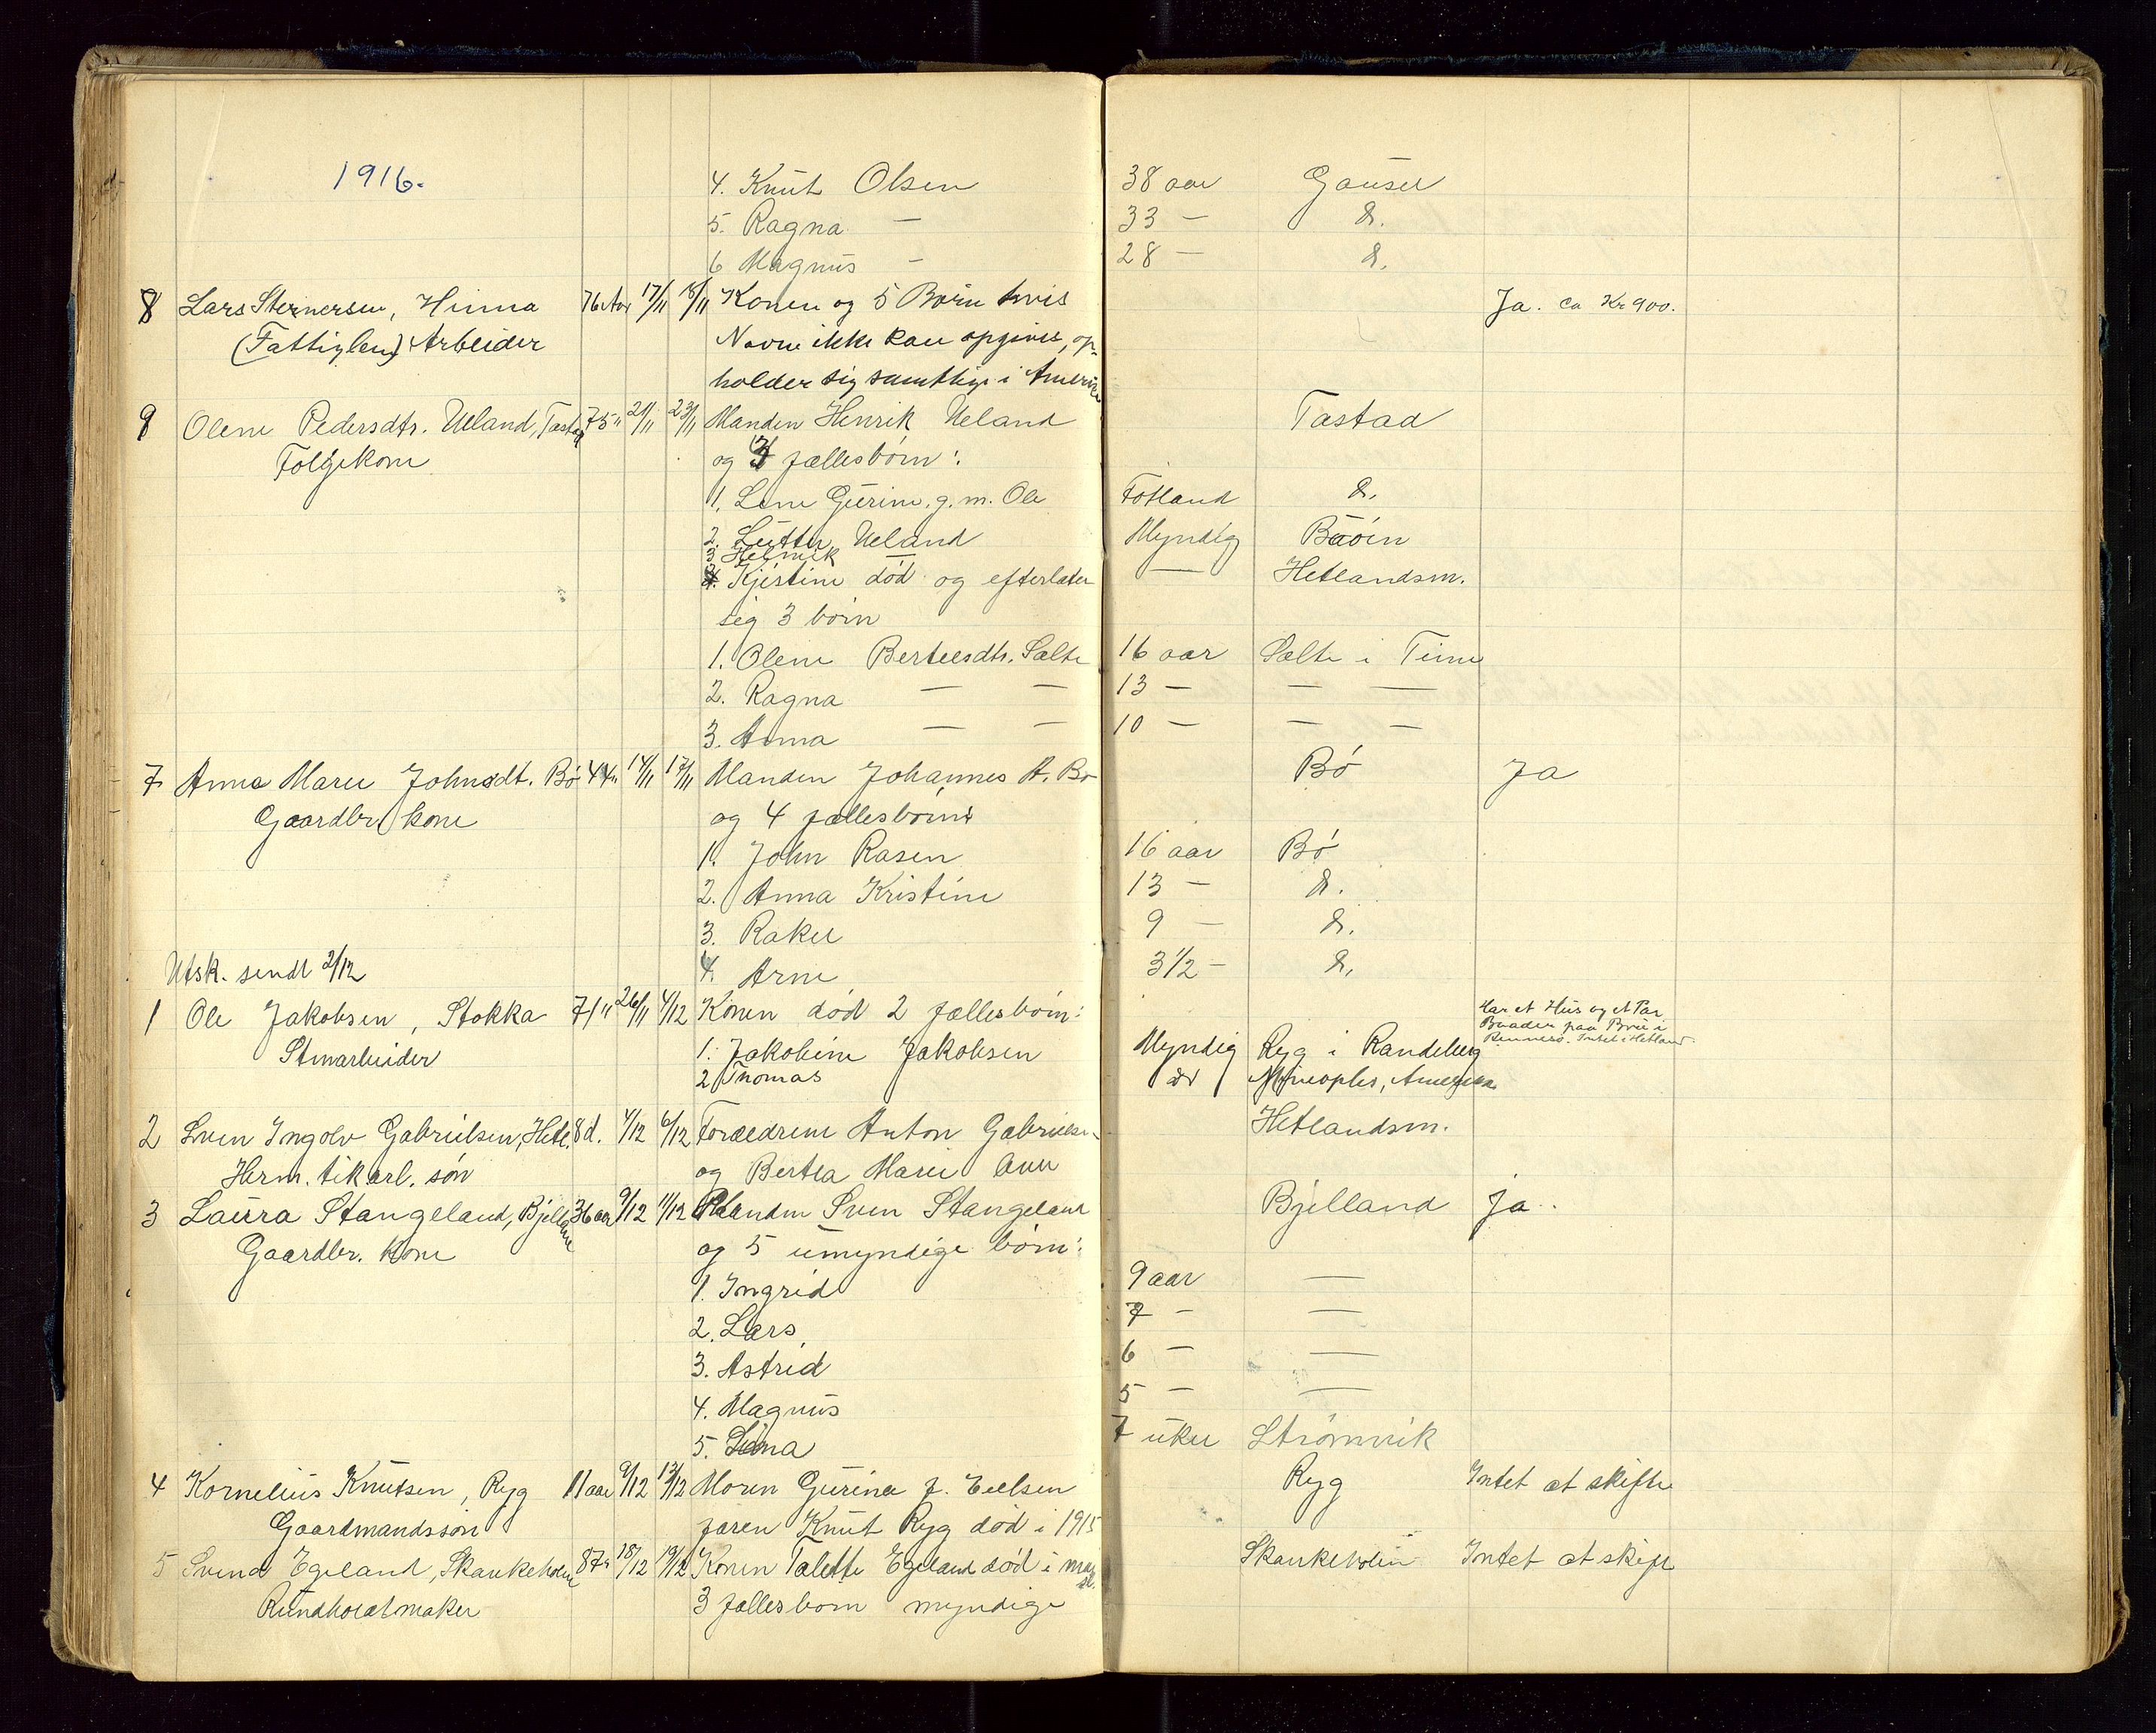 1916.
4. Knut Olsen 38 aar Gausel
5. Ragna — 33 — d.
6 Magnus - 28 — d.
8 Lars Stenersen, Hinna 76 Aar 17/11 18/11 Konen og 5 Børn hvis Ja. ca Kr 900.
(Fattiglem) Arbeider Navne ikke kan opgives, op-
holder sig samtlige i Amerika
9 Olene Pedersdtr. Ueland, Tastad 75 " 21/11 23/11 Manden Henrik Ueland Tastad
Følgekone og 4 fællesbørn:
1. Lene Gurine g. m. Ole Fotland d.
2. Lutter Ueland Myndig Bøin
3 Helmik
4. Kjistine død og efterlater — Hetlandsm.
sig 3 børn
1. Olene Berteesdtr. Salte 16 aar Salte i Time
2. Ragna — — 13 — — —
3. Anna — — 10 — — —
7 Anna Marie Johnsdt. Bø 44 " 14/11 17/11 Manden Johannes A. Bø Bø Ja
Gaardbr. kone og 4 fællesbørn
1. John Rasen 16 aar Bø
2. Anna Kristine 13 — d.
3. Rakel 9 — d.
Utsk. sendt 2/12 4. Arne 3 1/2 — d.
1 Ole Jakobsen, Stokka 71 " 26/11 4/12 Konen død 2 fællesbørn: Har et Hus og et Par
Baader paa Brü i
Rennesø. Intet i Hetland
Stenarbeider 1. Jakobine Jakobsen Myndig Ryg i Randeberg
2 Thomas do Mineoplis, Amerika
2 Sven Ingolv Gabrielsen, Hetl. 8 d. 4/12 6/12 Forældrene Anton Gabrielsen Hetlandsm.
Herm. tik arb. søn og Bertea Marie
3 Laura Stangeland, Bjelland 36 aar 9/12 11/12 Manden Sven Stangeland Bjelland ja.
Gaardbr. kone og 5 umyndige børn:
1. Ingrid 9 aar —
2. Lars 7 - —
3. Astrid 6 — —
4. Magnus 5 — —
5. 7 uker Strømvik
4 Kornelius Knutsen, Ryg 11 aar 9/12 13/12 Moren Gurine f. Eielsen Ryg Intet at skifte
Gaardmandssøn faren Knut Ryg død i 1915
5 Svend Egeland, Skankeholm 87 " 18/12 19/12 Konen Talette Egeland død i mai Skankeholm Intet at skifte
Rundholtmaker 3 fællesborn myndige